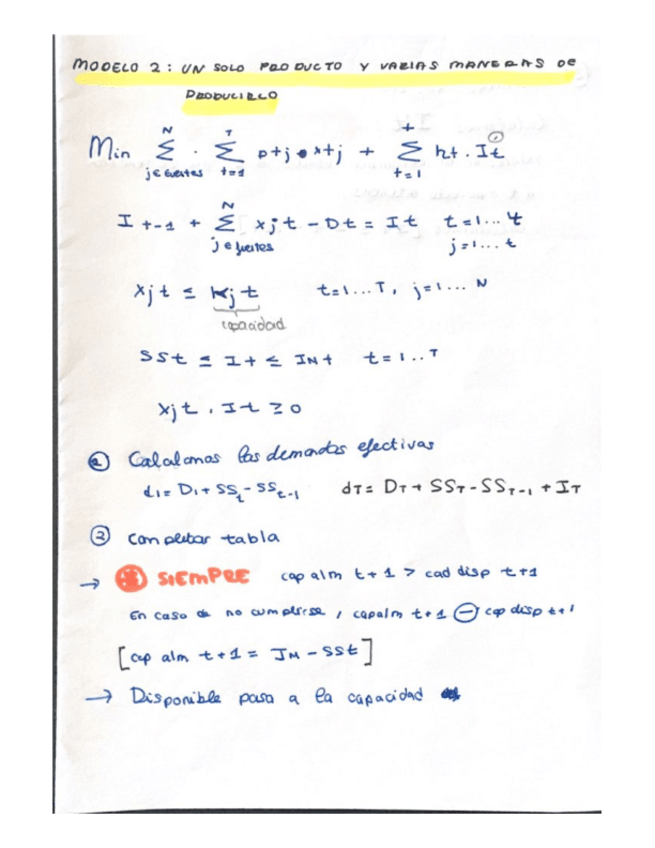 MODELO 2: UN SOLO PRODUCTO Y VARIAS MANERAS DE
PRODUCIRLO
Min N Σ j∈fuentes · T Σ t=1 ptj • xtj + t Σ t=1 ht . It
I t-1 + N Σ j∈fuentes xjt - Dt = It t=1...t
j=1...t
xjt ≤ Kjt t=1...T, j=1...N
capacidad
SSt ≤ It ≤ IMt t=1..T
xjt , It ≥ 0
① Calculamos las demandas efectivas
d1= D1 + SSt - SSt-1 dT= DT + SST - SST-1 + IT
② Completar tabla
→ SIEMPRE cap alm t+1 > cad disp t+1
En caso de no cumplirse, capalm t+1 ⊖ cap disp t+1
[cap alm t+1 = IM - SSt]
→ Disponible pasa a la capacidad